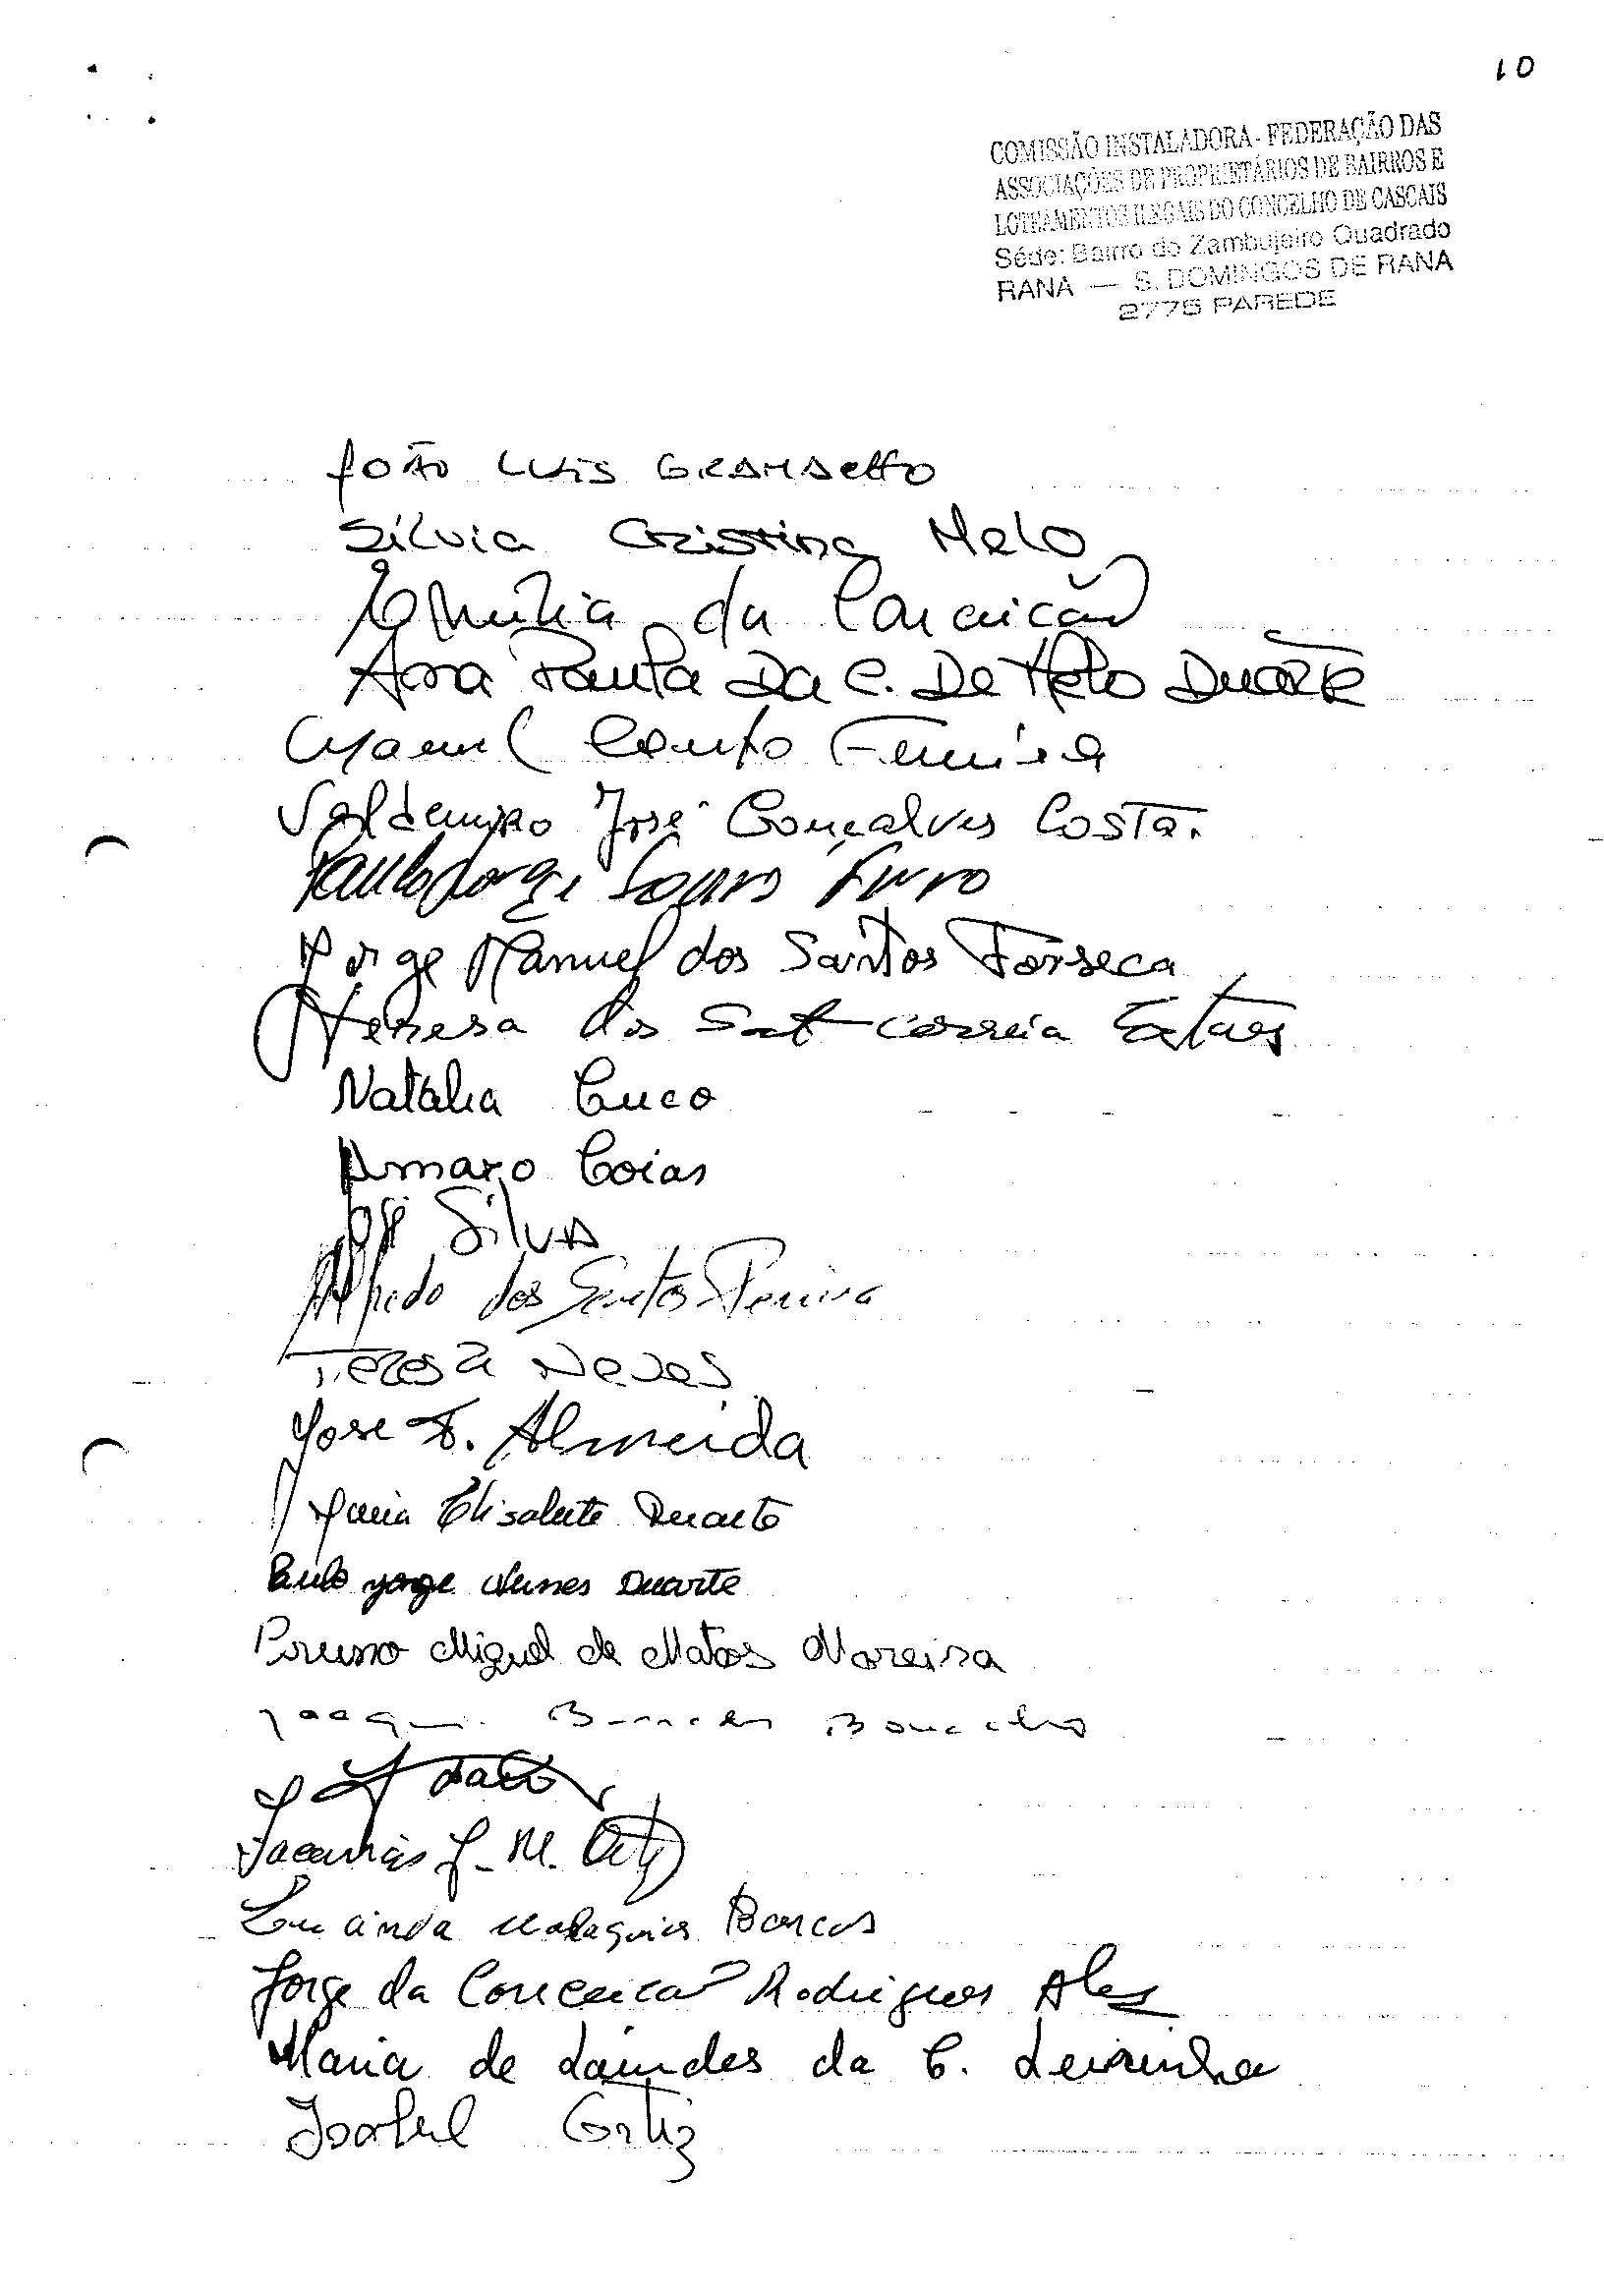 10
COMISSÃO INSTALADORA - FEDERAÇÃO DAS
ASSOCIAÇÕES DE PROPRIETÁRIOS DE BAIRROS E
LOTEAMENTOS ILEGAIS DO CONCELHO DE CASCAIS
Séde: Bairro do Zambujeiro Quadrado
RANA — S. DOMINGOS DE RANA
2775 PAREDE
João Luis
Silvia Cristina Melo
da Conceição
Ana Paula Da C. De Melo Duarte
Couto Ferreira
Valdemiro José Gonçalves Costa.
Paulo Jorge
Jorge Manuel dos Santos Fonseca
Teresa dos Correia
Natalia Cuco
Amaro Coias
José Silva
Alfredo dos Santos Pereira
Teresa Neves
Jose F. Almeida
Maria Elisabete Duarte
Paulo Jorge Nunes Duarte
Bruno Miguel de Matos Moreira
J. M.
Lucinda Malaquias Barcos
Jorge da Conceicao Rodrigues Alves
Maria de Lourdes da C.
Isabel Ortiz